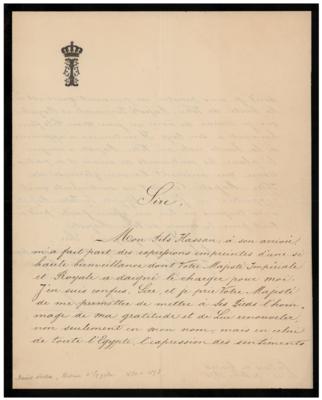 Sire,
Mon fils Hassan, à son arrivée
m'a fait part des expressions empreintes d'une si
haute bienveillance dont Votre Majesté Impériale
et Royale a daigné le charger pour moi.
J'en suis confus, Sire, et je prie Votre Majesté
de me permettre de mettre à Ses Pieds l'hom-
mage de ma gratitude et de Lui renouveler,
non seulement en mon nom, mais en celui
de toute l'Égypte, l'expression des sentiments